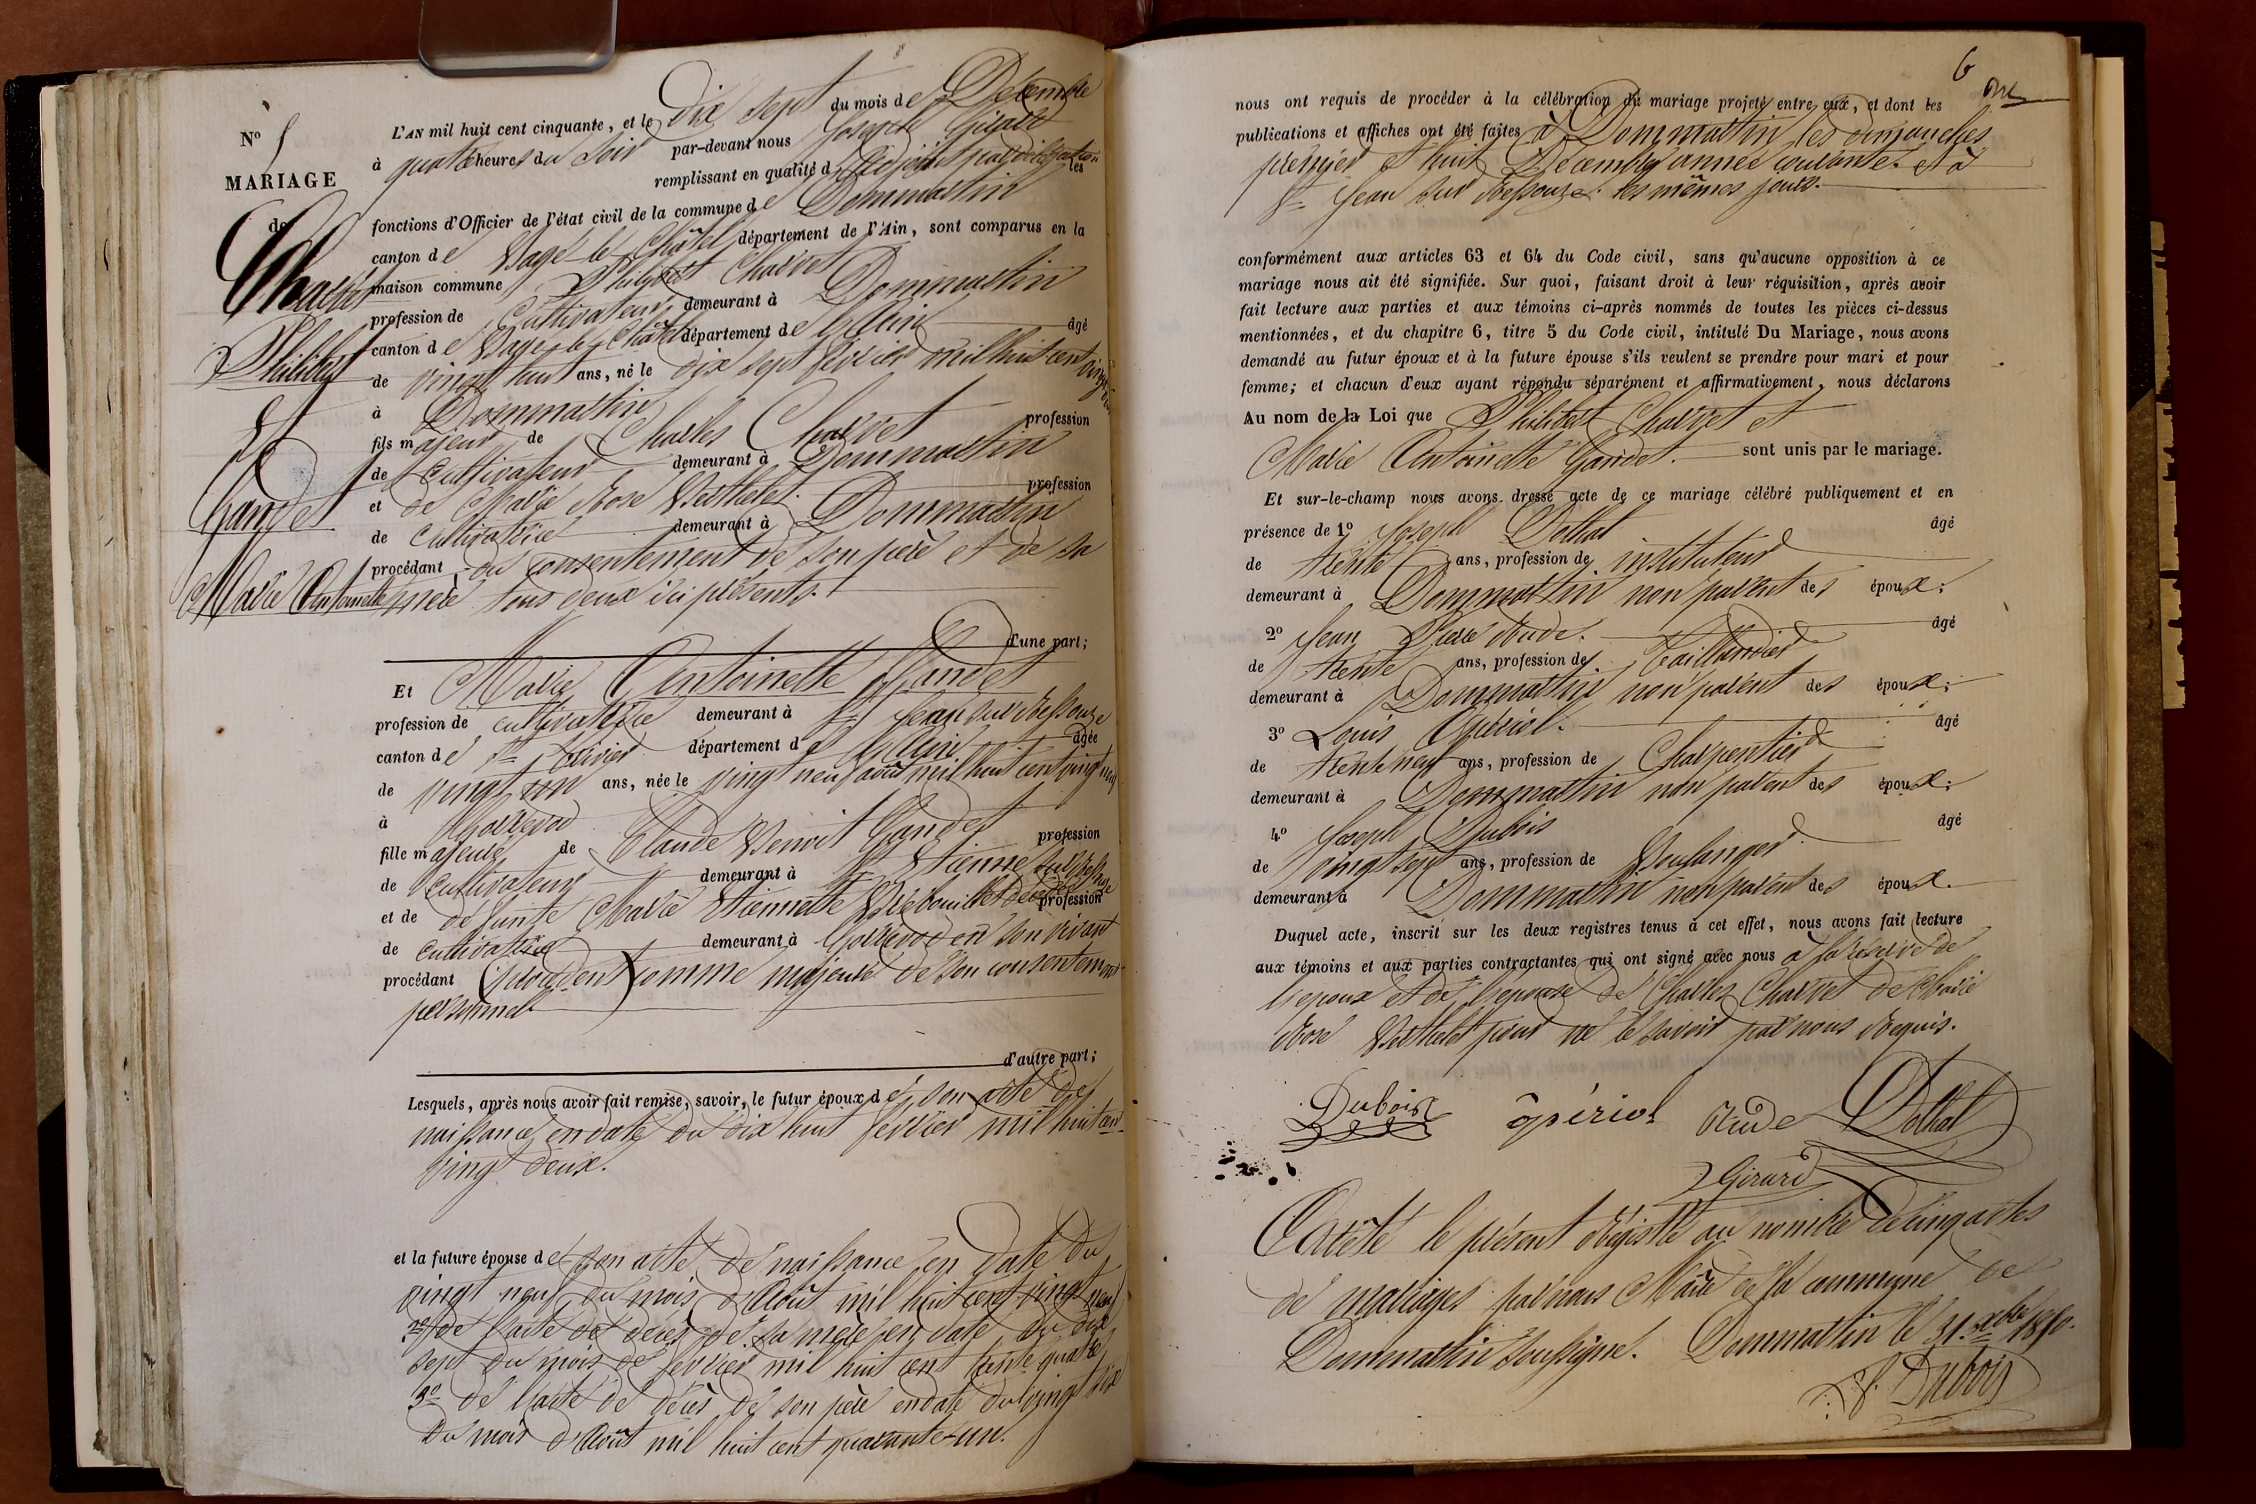 N° 5
MARIAGE
de
Charvet
Philibert
Et
Gandet
Marie Antoinette
L'AN mil huit cent cinquante, et le dix sept du mois de Décembre
à quatre heures du soir par-devant nous Joseph Girard
remplissant en qualité d'adjoint par délégation les
fonctions d'Officier de l'état civil de la commune de Dommartin
canton de Bagé le Châtel département de l'Ain, sont comparus en la
maison commune Philibert Charvet
profession de Cultivateur demeurant à Dommartin
canton de Bagé le Châtel département de l'Ain âgé
de vingt huit ans, né le dix sept février mil huit cent vingt
à Dommartin
fils majeur de Charles Charvet profession
de Cultivateur demeurant à Dommartin
et de Marie Rose Berthelet profession
de Cultivatrice demeurant à Dommartin
procédant du consentement de son père et de sa
mère tous deux ici présents.
d'une part;
Et Marie Antoinette Gandet
profession de cultivatrice demeurant à St Jean sur Reyssouze
canton de St Trivier département de l'Ain âgée
de vingt un ans, née le vingt neuf août mil huit cent vingt neuf
à Gorrevod
fille majeure de Claude Benoit Gandet profession
de Cultivateur demeurant à St Etienne sur Reyssouze
et de défunte Marie Etiennette profession
de cultivatrice demeurant à Gorrevod en son vivant
procédant comme majeure de son consentement
personnel
d'autre part;
Lesquels, après nous avoir fait remise, savoir, le futur époux de son acte de
naissance en date du dix huit février mil huit cent
vingt deux.
et la future épouse de son acte de naissance en date du
vingt neuf du mois d'Août mil huit cent vingt neuf
2° de l'acte de décès de sa mère en date du dix
sept du mois de février mil huit cent trente quatre
3° de l'acte de décès de son père en date du vingt six
du mois d'Août mil huit cent quarante-un.
6
nous ont requis de procéder à la célébration du mariage projeté entre eux, et dont les
publications et affiches ont été faites à Dommartin les dimanches
premier et huit Décembre année courante. et à
St Jean sur Reyssouze les mêmes jours.
conformément aux articles 63 et 64 du Code civil, sans qu'aucune opposition à ce
mariage nous ait été signifiée. Sur quoi, faisant droit à leur réquisition, après avoir
fait lecture aux parties et aux témoins ci-après nommés de toutes les pièces ci-dessus
mentionnées, et du chapitre 6, titre 5 du Code civil, intitulé Du Mariage, nous avons
demandé au futur époux et à la future épouse s'ils veulent se prendre pour mari et pour
femme; et chacun d'eux ayant répondu séparément et affirmativement, nous déclarons
Au nom de la Loi que Philibert Charvet et
Marie Antoinette Gandet. sont unis par le mariage.
Et sur-le-champ nous avons dressé acte de ce mariage célébré publiquement et en
présence de 1° Joseph Dolhat âgé
de trente ans, profession de instituteur
demeurant à Dommartin non parent des époux;
2° Jean Pierre Rude. âgé
de trente ans, profession de Taillandier
demeurant à Dommartin non parent des époux;
3° Louis Opériol. âgé
de trente neuf ans, profession de Charpentier
demeurant à Dommartin non parent des époux;
4° Joseph Dubois âgé
de vingt sept ans, profession de Boulanger
demeurant à Dommartin non parent des époux.
Duquel acte, inscrit sur les deux registres tenus à cet effet, nous avons fait lecture
aux témoins et aux parties contractantes qui ont signé avec nous à la réserve de
l'époux et de l'épouse de Charles Charvet de Marie
Rose Berthelet pour ne le savoir par nous Requis.
Dubois opériol Rude Dolhat
Girard
Arrêté le présent Régistre au nombre de cinq actes
de mariages par nous Maire de la commune de
Dommartin soussigné. Dommartin le 31 Xbre 1850.
Dubois